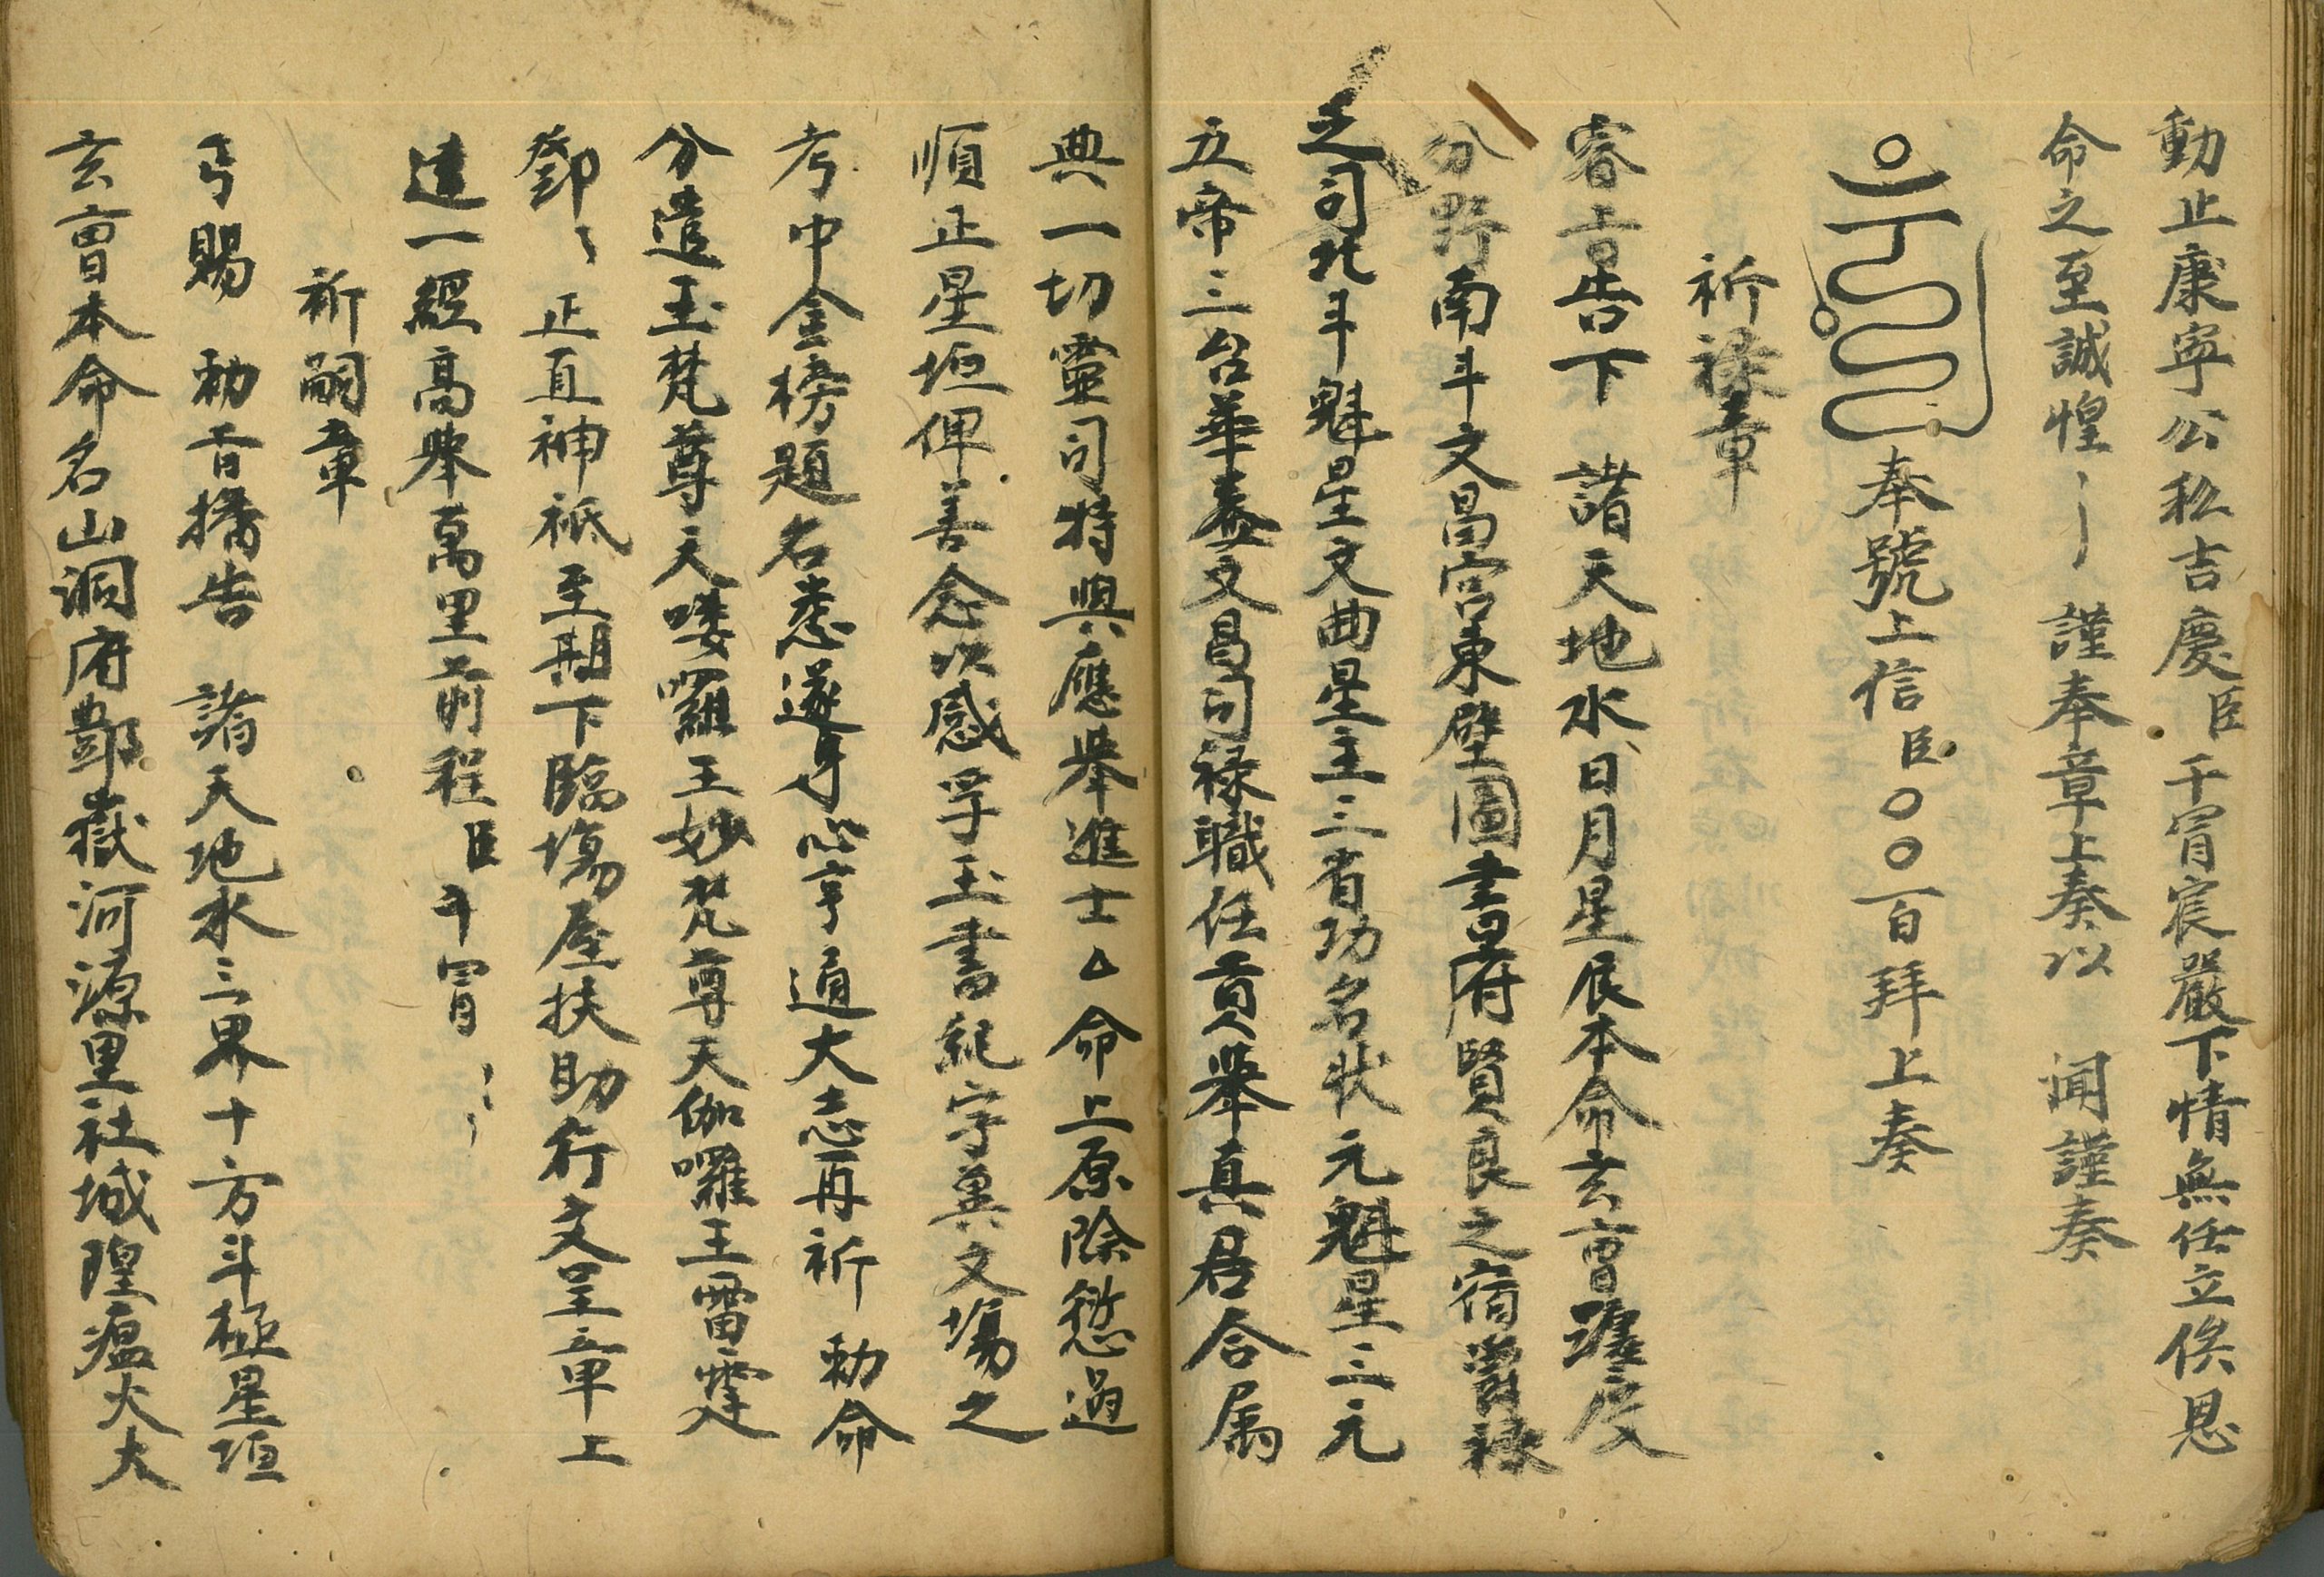 動止康寧公私吉慶臣干冒宸嚴下情無任立俟恩
命之至誠惶〻〻謹奉章上奏以 聞謹奏
奉號上信臣〇〇百拜上奏
祈祿章
睿旨告下 諸天地水日月星辰本命玄曹躔度
分野南斗文昌宮東壁圖書府賢良之宿爵祿
之司北斗魁星文曲星主三省功名狀元魁星三元
五帝三台華蓋文昌司祿職任貢舉真君合属
典一切靈司特與應舉進士△命上原除愆過
順正星垣俾善念以感孚玉書紀字冀文場之
考中金榜題名悉遂身心亨通大志再祈 勑命
分遣玉梵尊天喽囉王妙梵尊天伽囉王雷霆
鄧〻正直神祇至期下臨塲屋扶助行文呈章上
達一經高舉萬里前程臣干冒〻〻
祈嗣章
丐賜 勑旨播告 諸天地水三界十方斗極星垣
玄曹本命名山洞府酆嶽河源里社城隍瘟火大